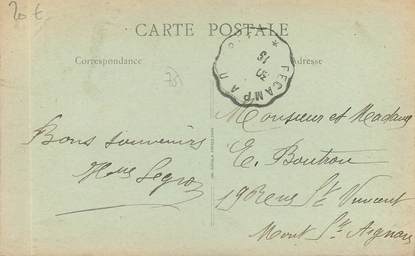 20 €
CARTE POSTALE
Correspondance
Adresse
FECAMP A
13
Bons souvenirs
Monsieur et Madame
E. Boutrou
19 Rue St Vincent
Mont St Aignan